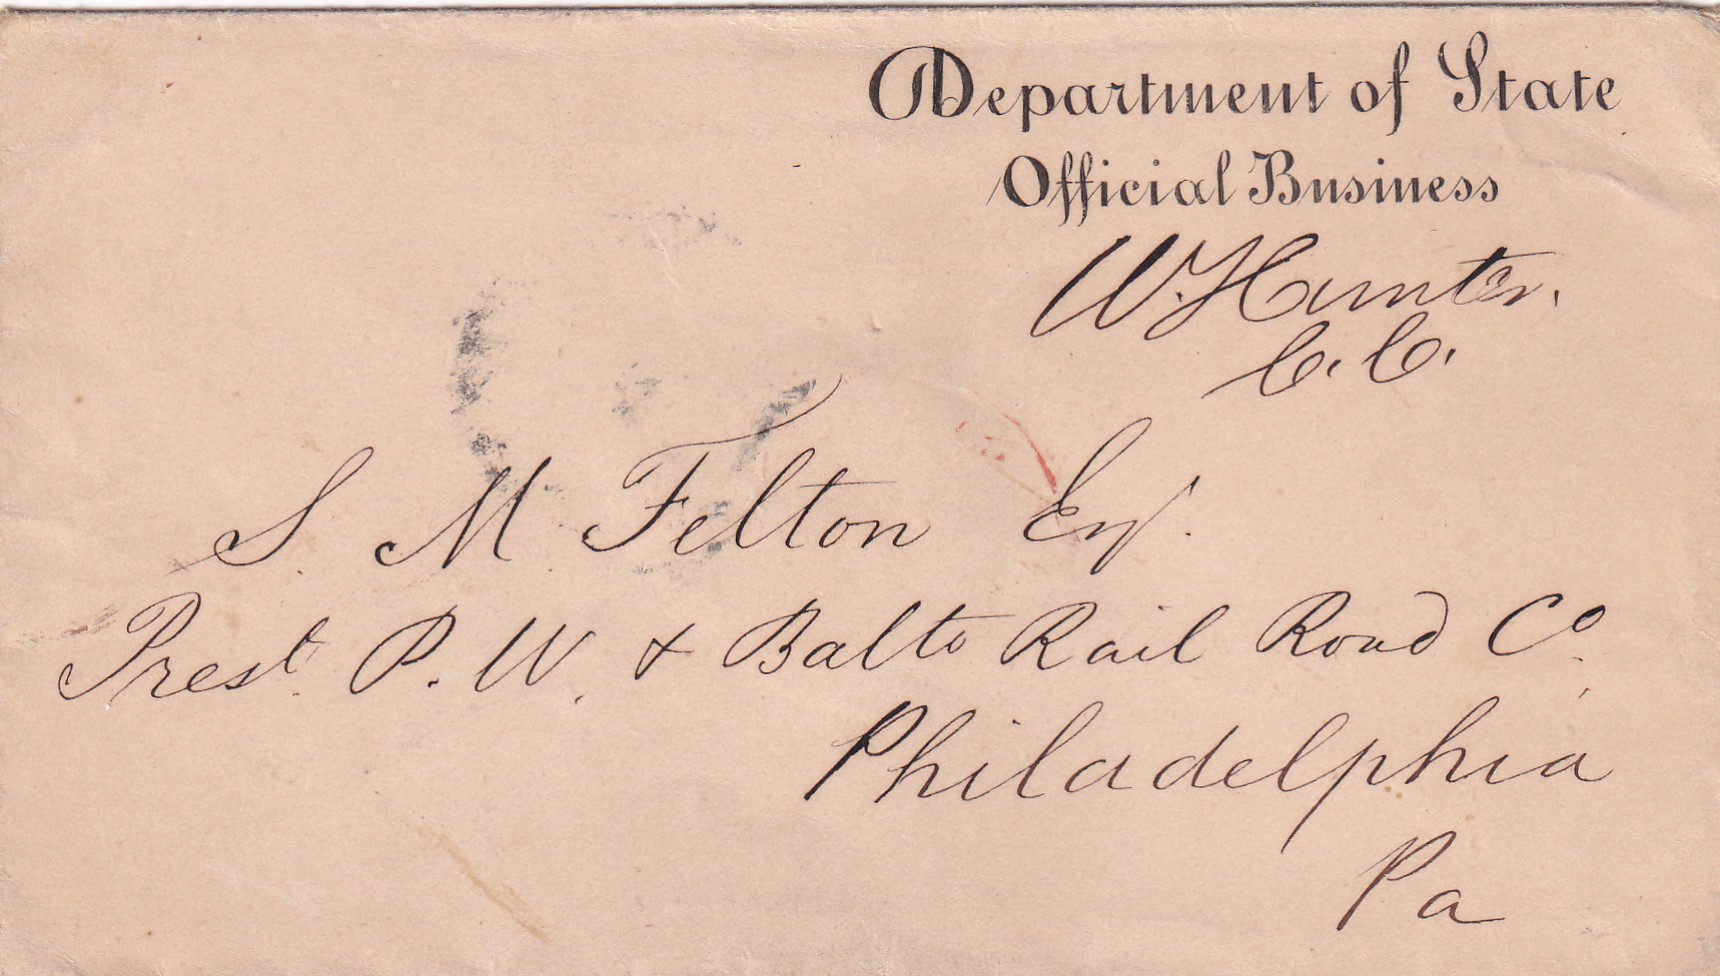 Department of State
Official Business
W. Hunter.
C. C.
S. M Felton Esq.
Prest. P. W. & Balto Rail Road Co.
Philadelphia
Pa